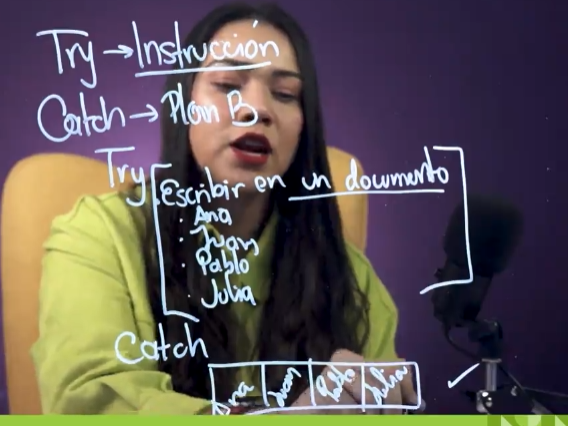 Try → Instrucción
Catch → Plan B
Try Escribir en un documento
· Ana
· Juan
· Pablo
· Julia
Catch
Ana Juan Pablo Julia ✓